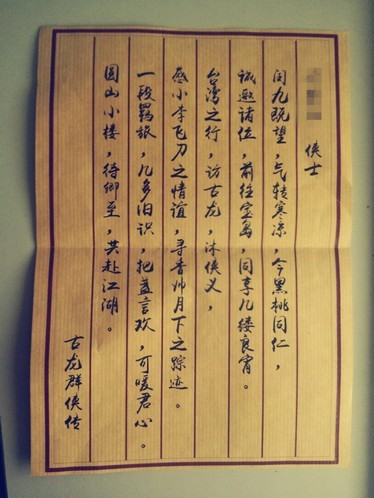 侠士
闰九既望，气转寒凉，今黑桃同仁，
诚邀诸位，前往宝岛，同享几缕良宵。
台湾之行，访古龙，沐侠义，
感小李飞刀之情谊，寻香帅月下之踪迹。
一段羁旅，几多旧识，把盏言欢，可暖君心。
圆山小楼，待卿至，共赴江湖。
古龙群侠传